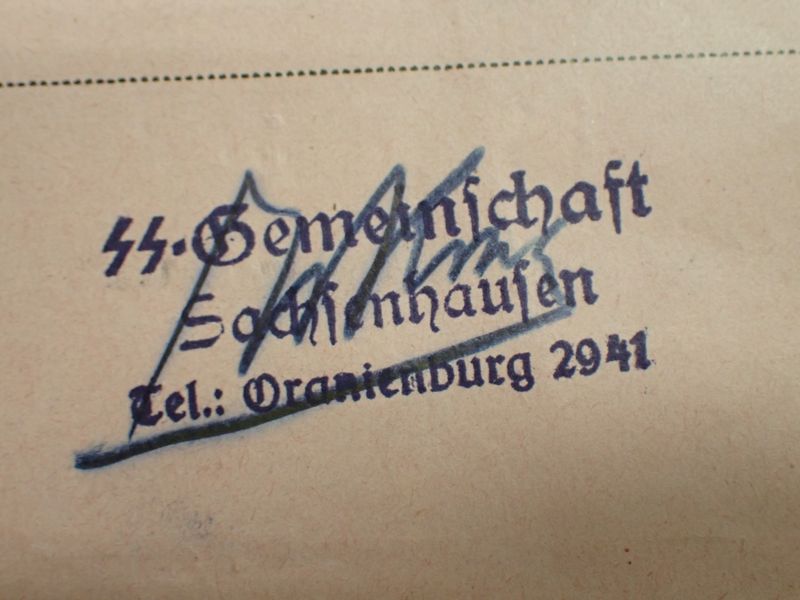 SS-Gemeinschaft
Sachsenhausen
Tel.: Oranienburg 2941